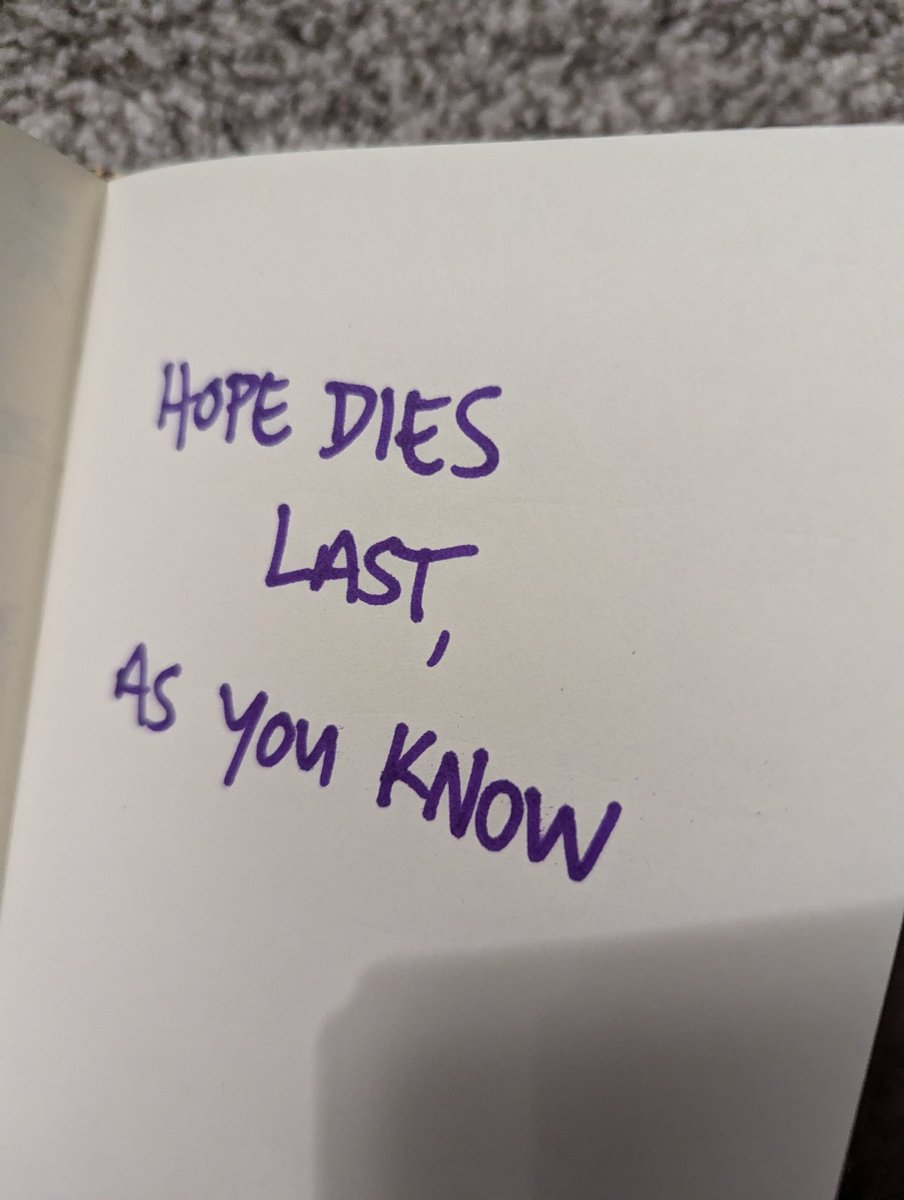 HOPE DIES
LAST,
AS YOU KNOW